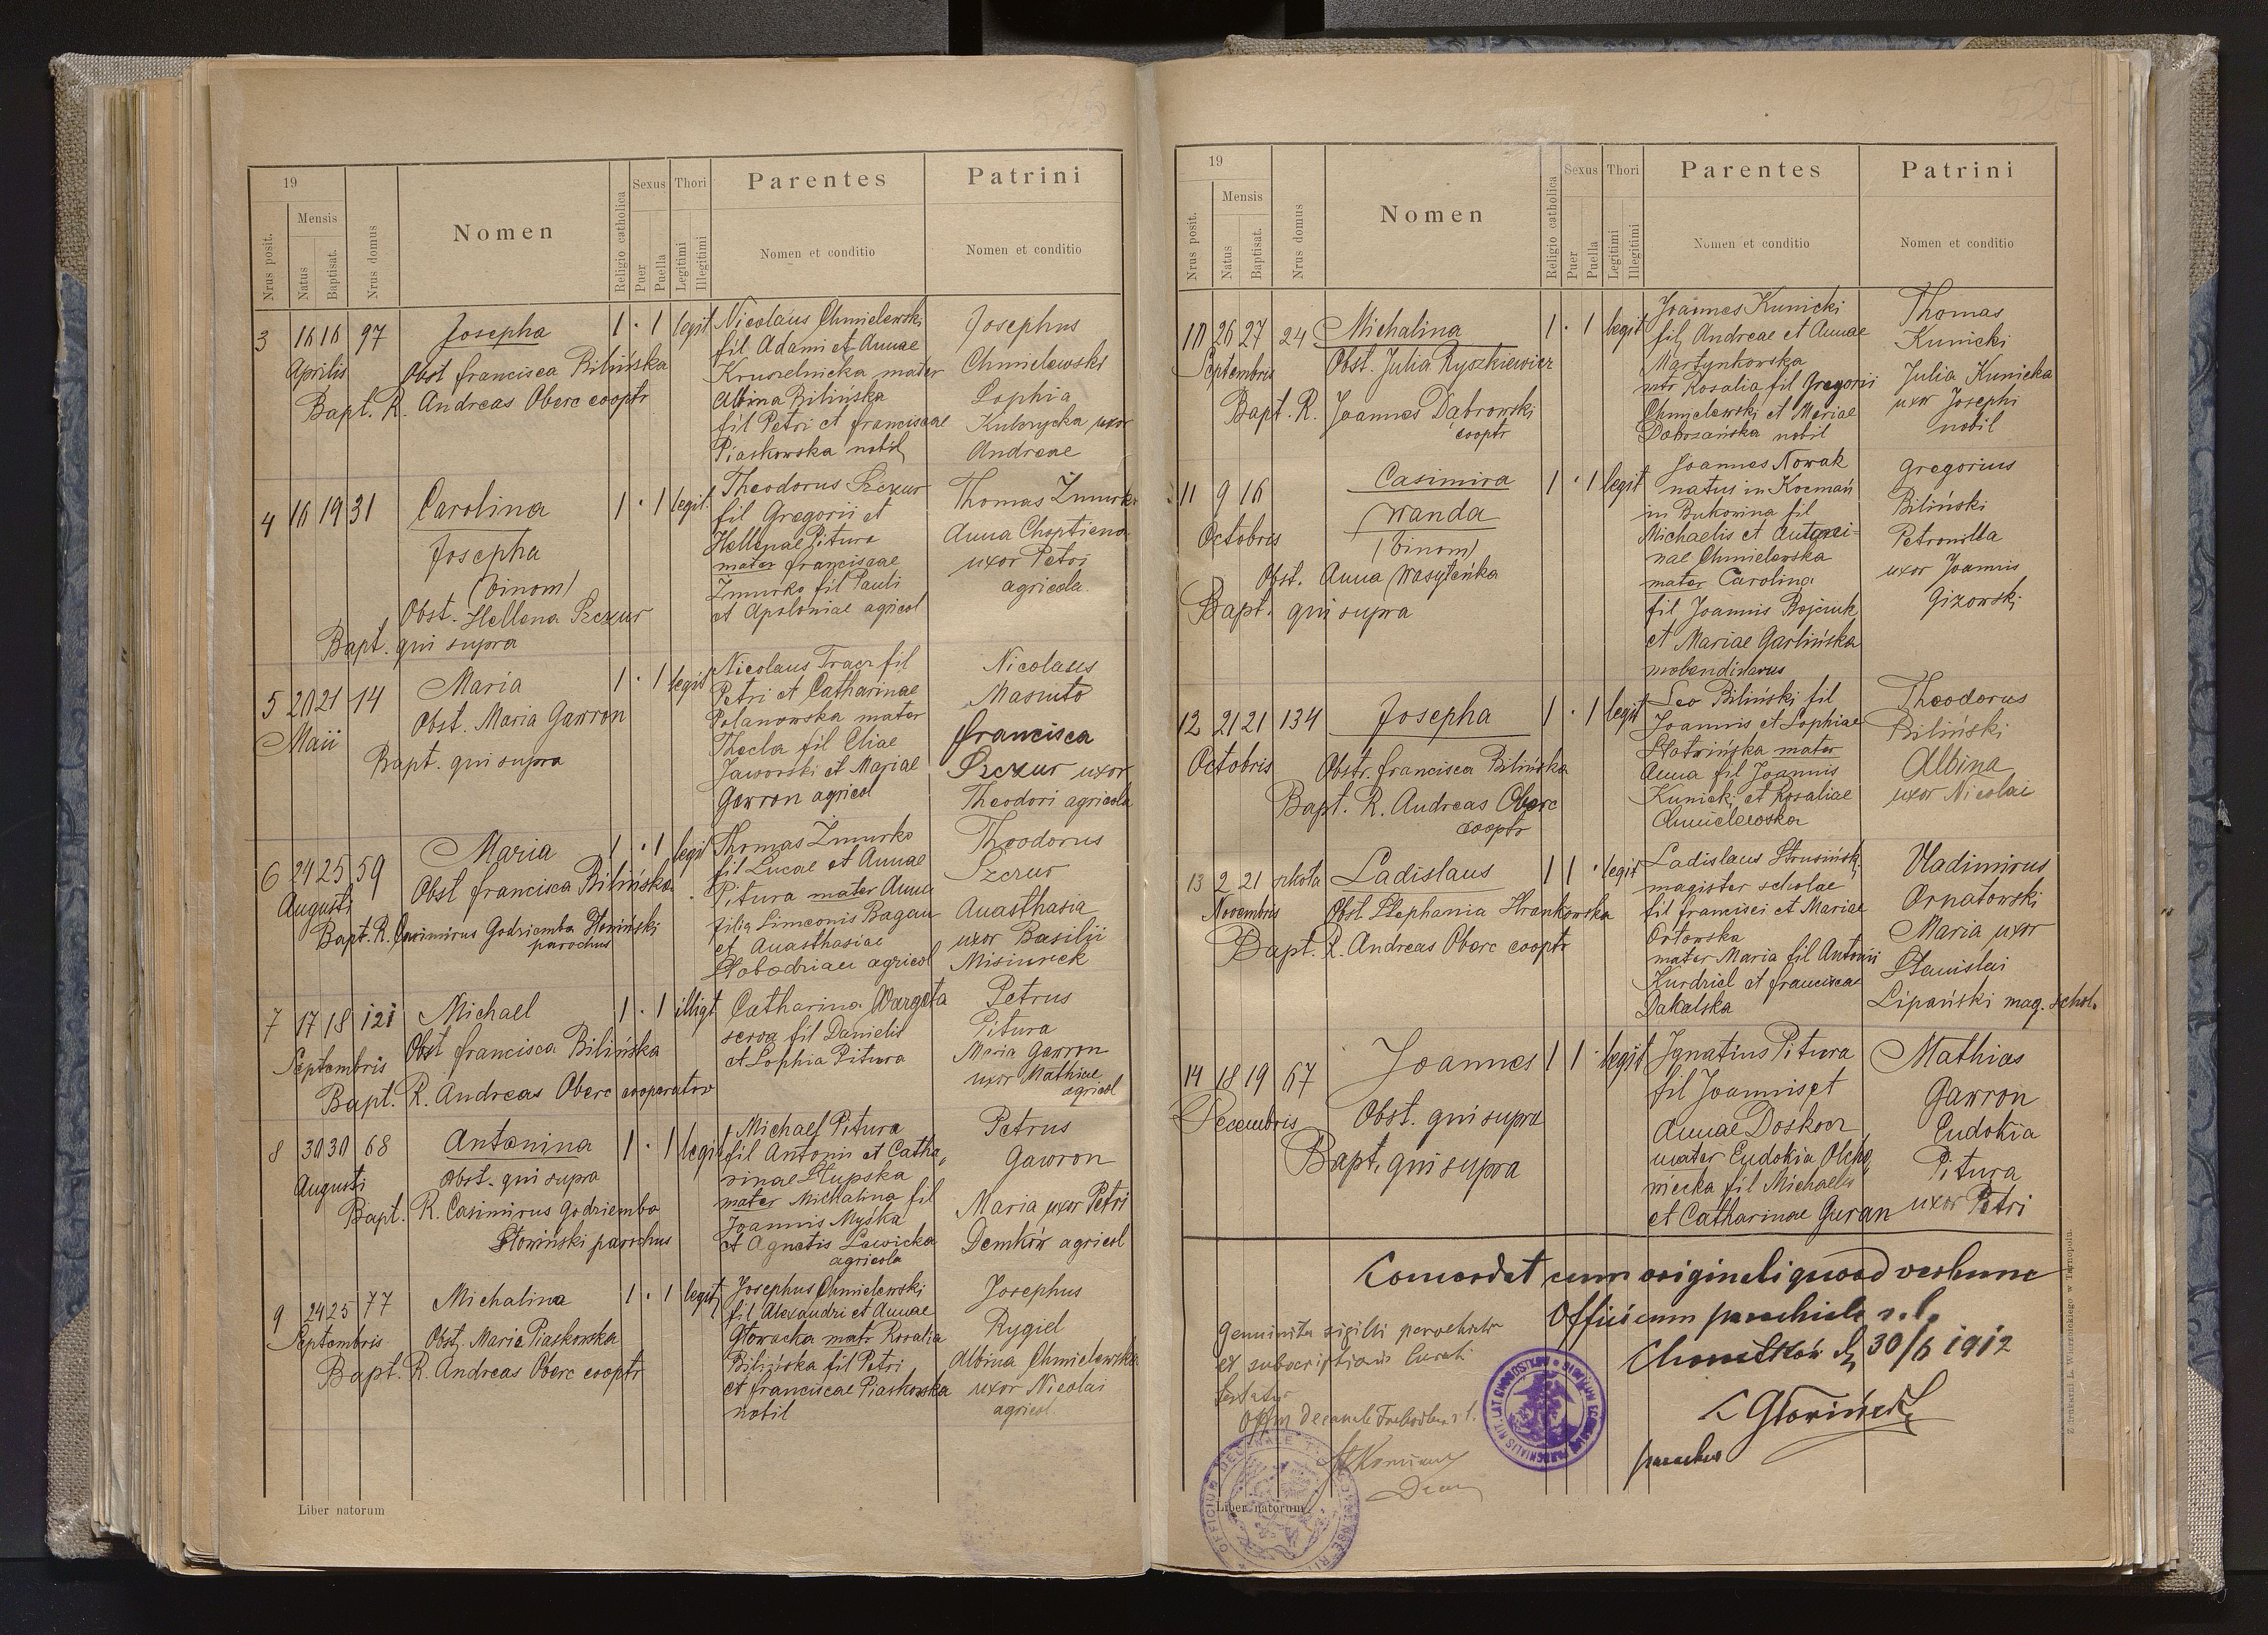 19
Mensis
Nrus posit.
Natus
Baptisat.
Nrus domus
Nomen
Religio catholica
Sexus
Puer
Puella
Thori
Legitimi
Illegitimi
Parentes
Nomen et conditio
Patrini
Nomen et conditio
3 16 16 97 Josepha 1 · 1 legit
Aprilis Obst francisca Bilińska
Bapt. R. Andreas Oberc cooptr
Nicolaus Chmielewski
fil Adami et Annae
Kruszelnicka mater
Albina Bilińska
fil Petri et franciscae
Piaskowska nobil
Josephus
Chmielewski
Sophia
uxor
Andreae
4 16 19 31 Carolina 1 · 1 legit.
Josepha
(binom)
Obst. Hellena Szczur
Bapt. qui supra
Theodorus Szczur
fil Gregorii et
Hellenae Pitura
mater franciscae
Żmurko fil Pauli
et Apoloniae agricol
Thomas Żmurko
Anna
uxor Petri
agricola
5 20 21 14 Maria 1 · 1 legit
Maii Obst. Maria Gawron
Bapt. qui supra
Nicolaus Tracz fil
Petri et Catharinae
Polanowska mater
Thecla fil Eliae
Jaworski et Mariae
Gawron agricol
Nicolaus
Masiuto
francisca
Szczur uxor
Theodori agricola
6 24 25 59 Maria 1 · 1 legit
Augusti Obst francisca Bilińska
Bapt. R. Casimirus Godziemba Słoniński
parochus
Thomas Żmurko
fil Lucae et Annae
Pitura mater Anna
filia Simeonis Bagan
et Anasthasiae
agricol
Theodorus
Szczur
Anasthasia
uxor Basilii
Misiurek
7 17 18 121 Michael 1 · 1 illigt
Septembris Obst francisca Bilińska
Bapt. R. Andreas Oberc cooperator
Catharina Wargata
serva fil Danielis
et Sophia Pitura
Petrus
Pitura
Maria Gawron
uxor Mathiae
agricol
8 30 30 68 Antonina 1 · 1 legit
Augusti Obst. qui supra
Bapt. R. Casimirus Godziemba
Słoniński parochus
Michael Pitura
fil Antonii et Catha,
rinae Słupska
mater Michalina fil
Joannis Myśka
et Agnetis Lawicka
agricola
Petrus
Gawron
Maria uxor Petri
Demków agricol
9 24 25 77 Michalina 1 · 1 legit
Septembris Obst. Maria Piaskowska
Bapt. R. Andreas Oberc cooptr
Josephus Chmielewski
fil Alexandri et Annae
Głowacka matr Rosalia
Bilińska fil Petri
et franciscae Piaskowska
nobil
Josephus
Rygiel
Albina Chmielewska
uxor Nicolai
agricol
Liber natorum
19
Mensis
Nrus posit.
Natus
Baptisat.
Nrus domus
Nomen
Religio catholica
Sexus
Puer
Puella
Thori
Legitimi
Illegitimi
Parentes
Nomen et conditio
Patrini
Nomen et conditio
10 26 27 24 Michalina 1 · 1 legit
Septembris Obst. Julia Ryszkiewicz
Bapt. R. Joannes Dąbrowski
cooptr
Joannes Kunicki
fil Andreae et Annae
Martynkowska
mtr Rosalia fil Gregorii
Chmielewski et Mariae
nobil
Thomas
Kunicki
Julia Kunicka
uxor Josephi
nobil
11 9 16 Casimira 1 · 1 legit
Octobris Wanda
(binom)
Obst. Anna Wasyleńka
Bapt. qui supra
Joannes Nowak
natus in Kocmań
in Bukowina fil
Michaelis et Antoni=
nae Chmielewska
mater Carolina
fil Joannis Bojczuk
et Mariae Garlińska
Gregorius
Biliński
Petronilla
uxor Joannis
Gizowski
12 21 21 134 Josepha 1 · 1 legit
Octobris Obstr. francisca Bilińska
Bapt. R. Andreas Oberc
cooptr
Leo Biliński fil
Joannis et Sophiae
mater
Anna fil Joannis
Kunicki et Rosaliae
Chmielewska
Theodorus
Biliński
Albina
uxor Nicolai
13 2 21 szkoła Ladislaus 1 1 · legit
Novembris Obst Stephania Hrankowska
Bapt. R. Andreas Oberc cooptr
Ladislaus Strusiński
magister scholae
fil francisci et Mariae
Orłowska
mater Maria fil Antonii
Kurdziel et franciscae
Dakalska
Vladimirus
Ornatowski
Maria uxor
Stanislai
Lipański mag. schol.
14 18 19 67 Joannes 1 1 · legit
Decembris Obst. qui supra
Bapt. qui supra
Ignatius Pitura
fil Joannis et
Annae Doskocz
mater Eudokia Olcho,
wiecka fil Michaelis
et Catharinae Guran
Mathias
Gawron
Eudokia
Pitura
uxor Petri
Concordat cum originali quoad verbum
Officium parochiale r. l.
30/6 1912
parochus
Genuinitatem sigilli parochialis
et subscriptionis Curati
testatur
Liber natorum
Z drukarni L. Wierzbickiego w Tarnopolu.